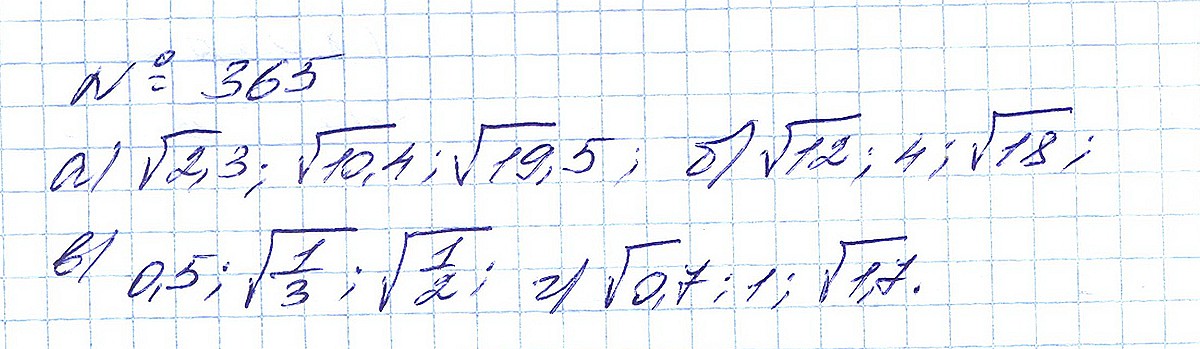 № 365
а) √2,3; √10,4; √19,5; б) √12; 4; √18;
в) 0,5; √1/3; √1/2; г) √0,7; 1; √1,7.